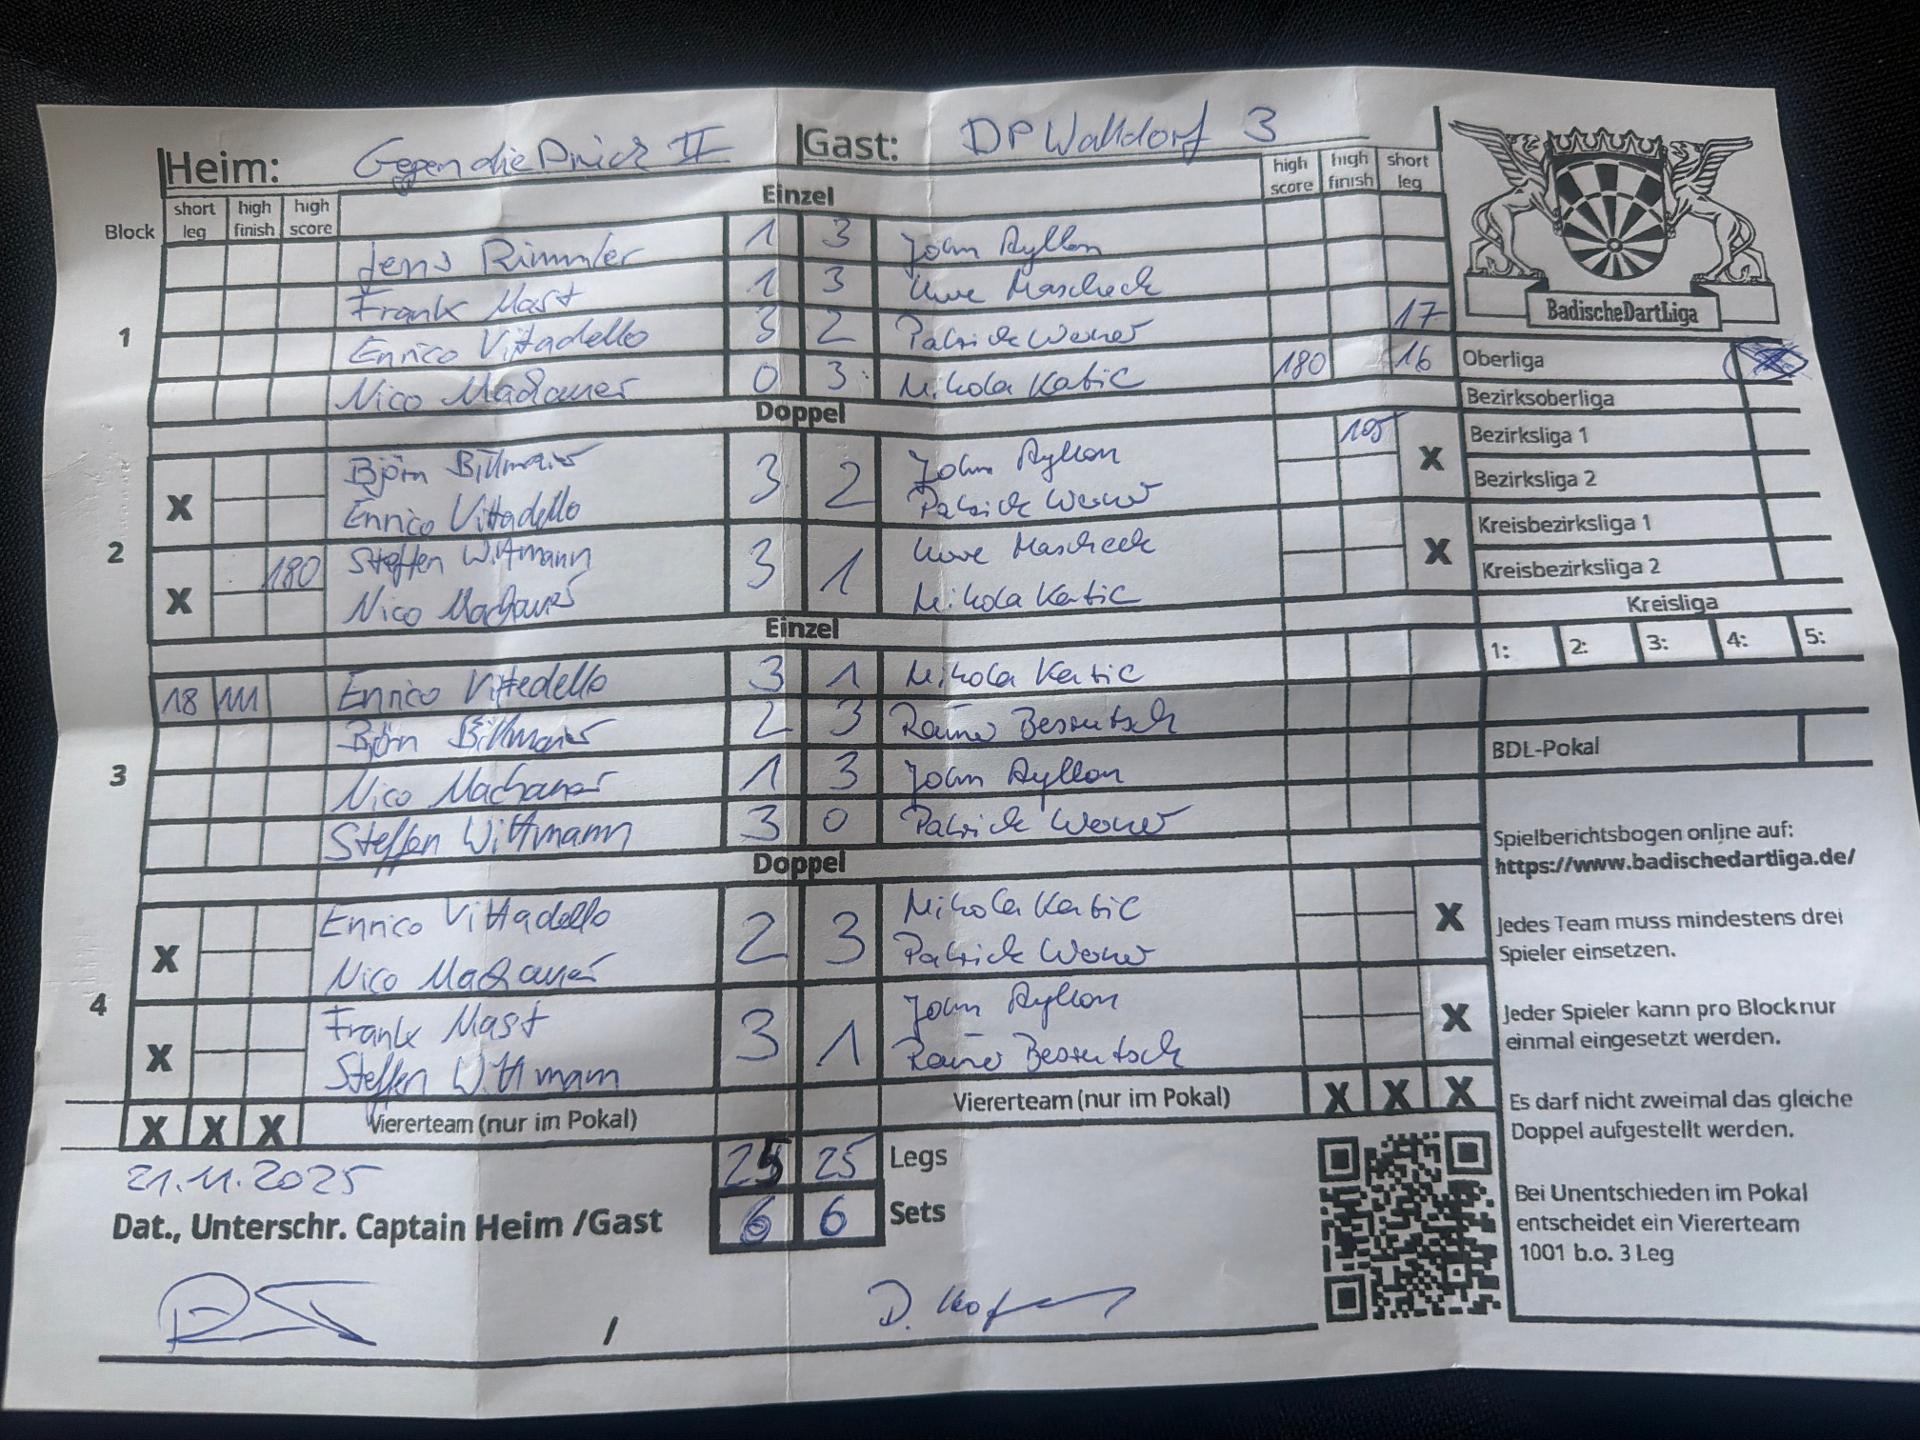 Heim: Gegen die Drück II Gast: DP Walldorf 3
Einzel
Block short leg high finish high score high score high finish short leg
1
Jens Rimmler 1 3 John Ayllon
Frank Mast 1 3 Uwe Mascheck
Enrico Vittadello 3 2 Patrick Werner 17
Nico Machauer 0 3 Nikola Katic 180 16
Doppel
2
X Björn Billmaier 3 2 John Ayllon 105 X
Enrico Vittadello Patrick Werner
X 180 Steffen Wittmann 3 1 Uwe Mascheck X
Nico Machauer Nikola Katic
Einzel
3
18 111 Enrico Vittadello 3 1 Nikola Katic
Björn Billmaier 2 3
Nico Machauer 1 3 John Ayllon
Steffen Wittmann 3 0 Patrick Werner
Doppel
4
X Enrico Vittadello 2 3 Nikola Katic X
Nico Machauer Patrick Werner
X Frank Mast 3 1 John Ayllon X
Steffen Wittmann
X X X Viererteam (nur im Pokal) Viererteam (nur im Pokal) X X X
25 25 Legs
6 6 Sets
21.11.2025
Dat., Unterschr. Captain Heim /Gast
/
BadischeDartLiga
Oberliga X
Bezirksoberliga
Bezirksliga 1
Bezirksliga 2
Kreisbezirksliga 1
Kreisbezirksliga 2
Kreisliga
1: 2: 3: 4: 5:
BDL-Pokal
Spielberichtsbogen online auf:
https://www.badischedartliga.de/
Jedes Team muss mindestens drei
Spieler einsetzen.
Jeder Spieler kann pro Block nur
einmal eingesetzt werden.
Es darf nicht zweimal das gleiche
Doppel aufgestellt werden.
Bei Unentschieden im Pokal
entscheidet ein Viererteam
1001 b.o. 3 Leg